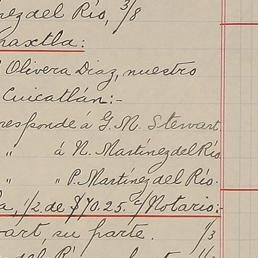 ez del Río, 3/8
naxtla:
Olivera Diaz, nuestro
Cuicatlán:-
responde á G. M. Stewart
" á N. Martínez del Río
" " P. Martínez del Río.
a, 1/2 de $70.25 Notario:
art, su parte. 1/3
del Río